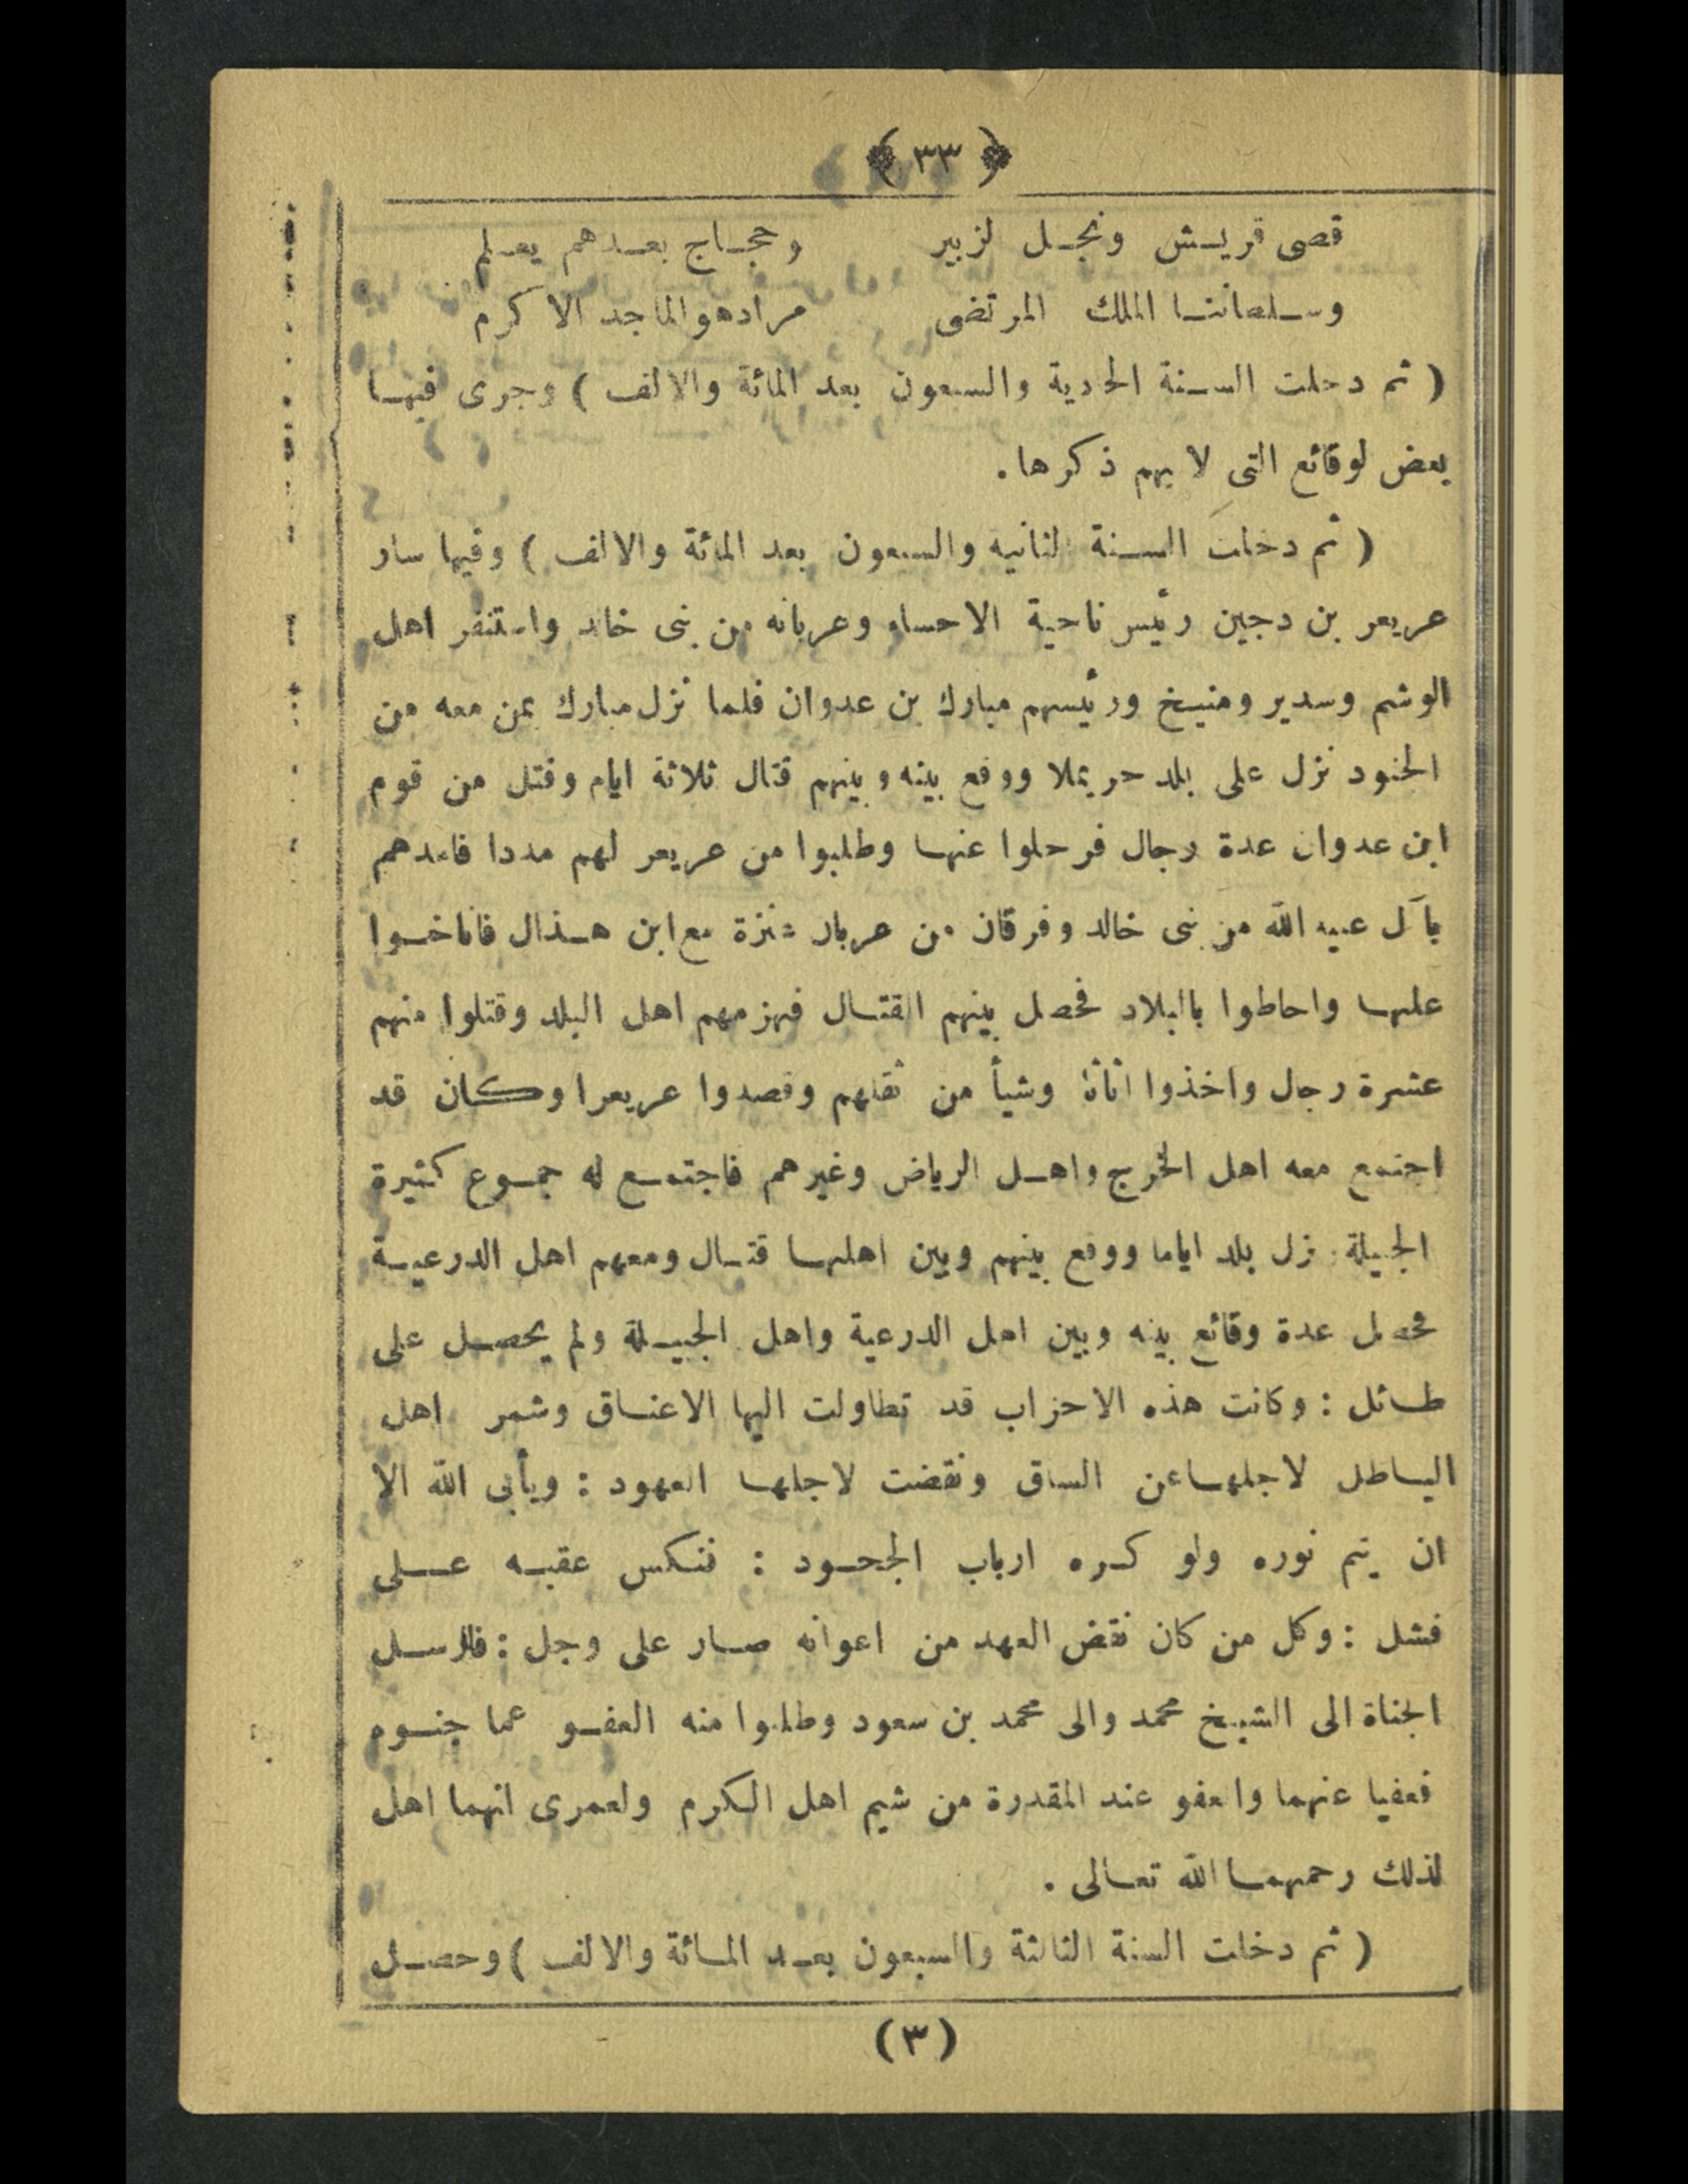 ﴿ ٣٣ ﴾
قصى قريش ونجل لزبير وحجاج بعدهم يعلم
وسلطاننا الملك المرتضى مراد هو الماجد الاكرم
( ثم دخلت السنة الحادية والسبعون بعد المائة والالف ) وجرى فيها
بعض لوقائع التى لا يهم ذكرها .
( ثم دخلت السنة الثانيه والسبعون بعد المائة والالف ) وفيها سار
عريعر بن دجين رئيس ناحية الاحساء وعربانه من بنى خالد واستنفر اهل
الوشم وسدير ومنيخ ورئيسهم مبارك بن عدوان فلما نزل مبارك بمن معه من
الجنود نزل على بلد حريملا ووقع بينه وبينهم قتال ثلاثة ايام وقتل من قوم
ابن عدوان عدة رجال فرحلوا عنها وطلبوا من عريعر لهم مددا فامدهم
بآل عبيد الله من بنى خالد وفرقان من عربان عنزة مع ابن هذال فاناخوا
عليها واحاطوا بالبلاد فحصل بينهم القتال فهزمهم اهل البلد وقتلوا منهم
عشرة رجال واخذوا اثاثا وشيأ من ثقلهم وقصدوا عريعرا وكان قد
اجتمع معه اهل الخرج واهل الرياض وغيرهم فاجتمع له جموع كثيرة
الجبيلة نزل بلد اياما ووقع بينهم وبين اهلها قتال ومعهم اهل الدرعية
فحصل عدة وقائع بينه وبين اهل الدرعية واهل الجبيلة ولم يحصل على
طائل : وكانت هذه الاحزاب قد تطاولت اليها الاعناق وشمر اهل
الباطل لاجلها عن الساق ونقضت لاجلها العهود : ويأبى الله الا
ان يتم نوره ولو كره ارباب الجحود : فنكس عقبه على
فشل : وكل من كان نقض العهد من اعوانه صار على وجل : فارسل
الجناة الى الشيخ محمد والى محمد بن سعود وطلبوا منه العفو عما جنوه
فعفيا عنهما والعفو عند المقدرة من شيم اهل الكرم ولعمرى انهما اهل
لذلك رحمهما الله تعالى .
( ثم دخلت السنة الثالثة والسبعون بعد المائة والالف ) وحصل
(٣)